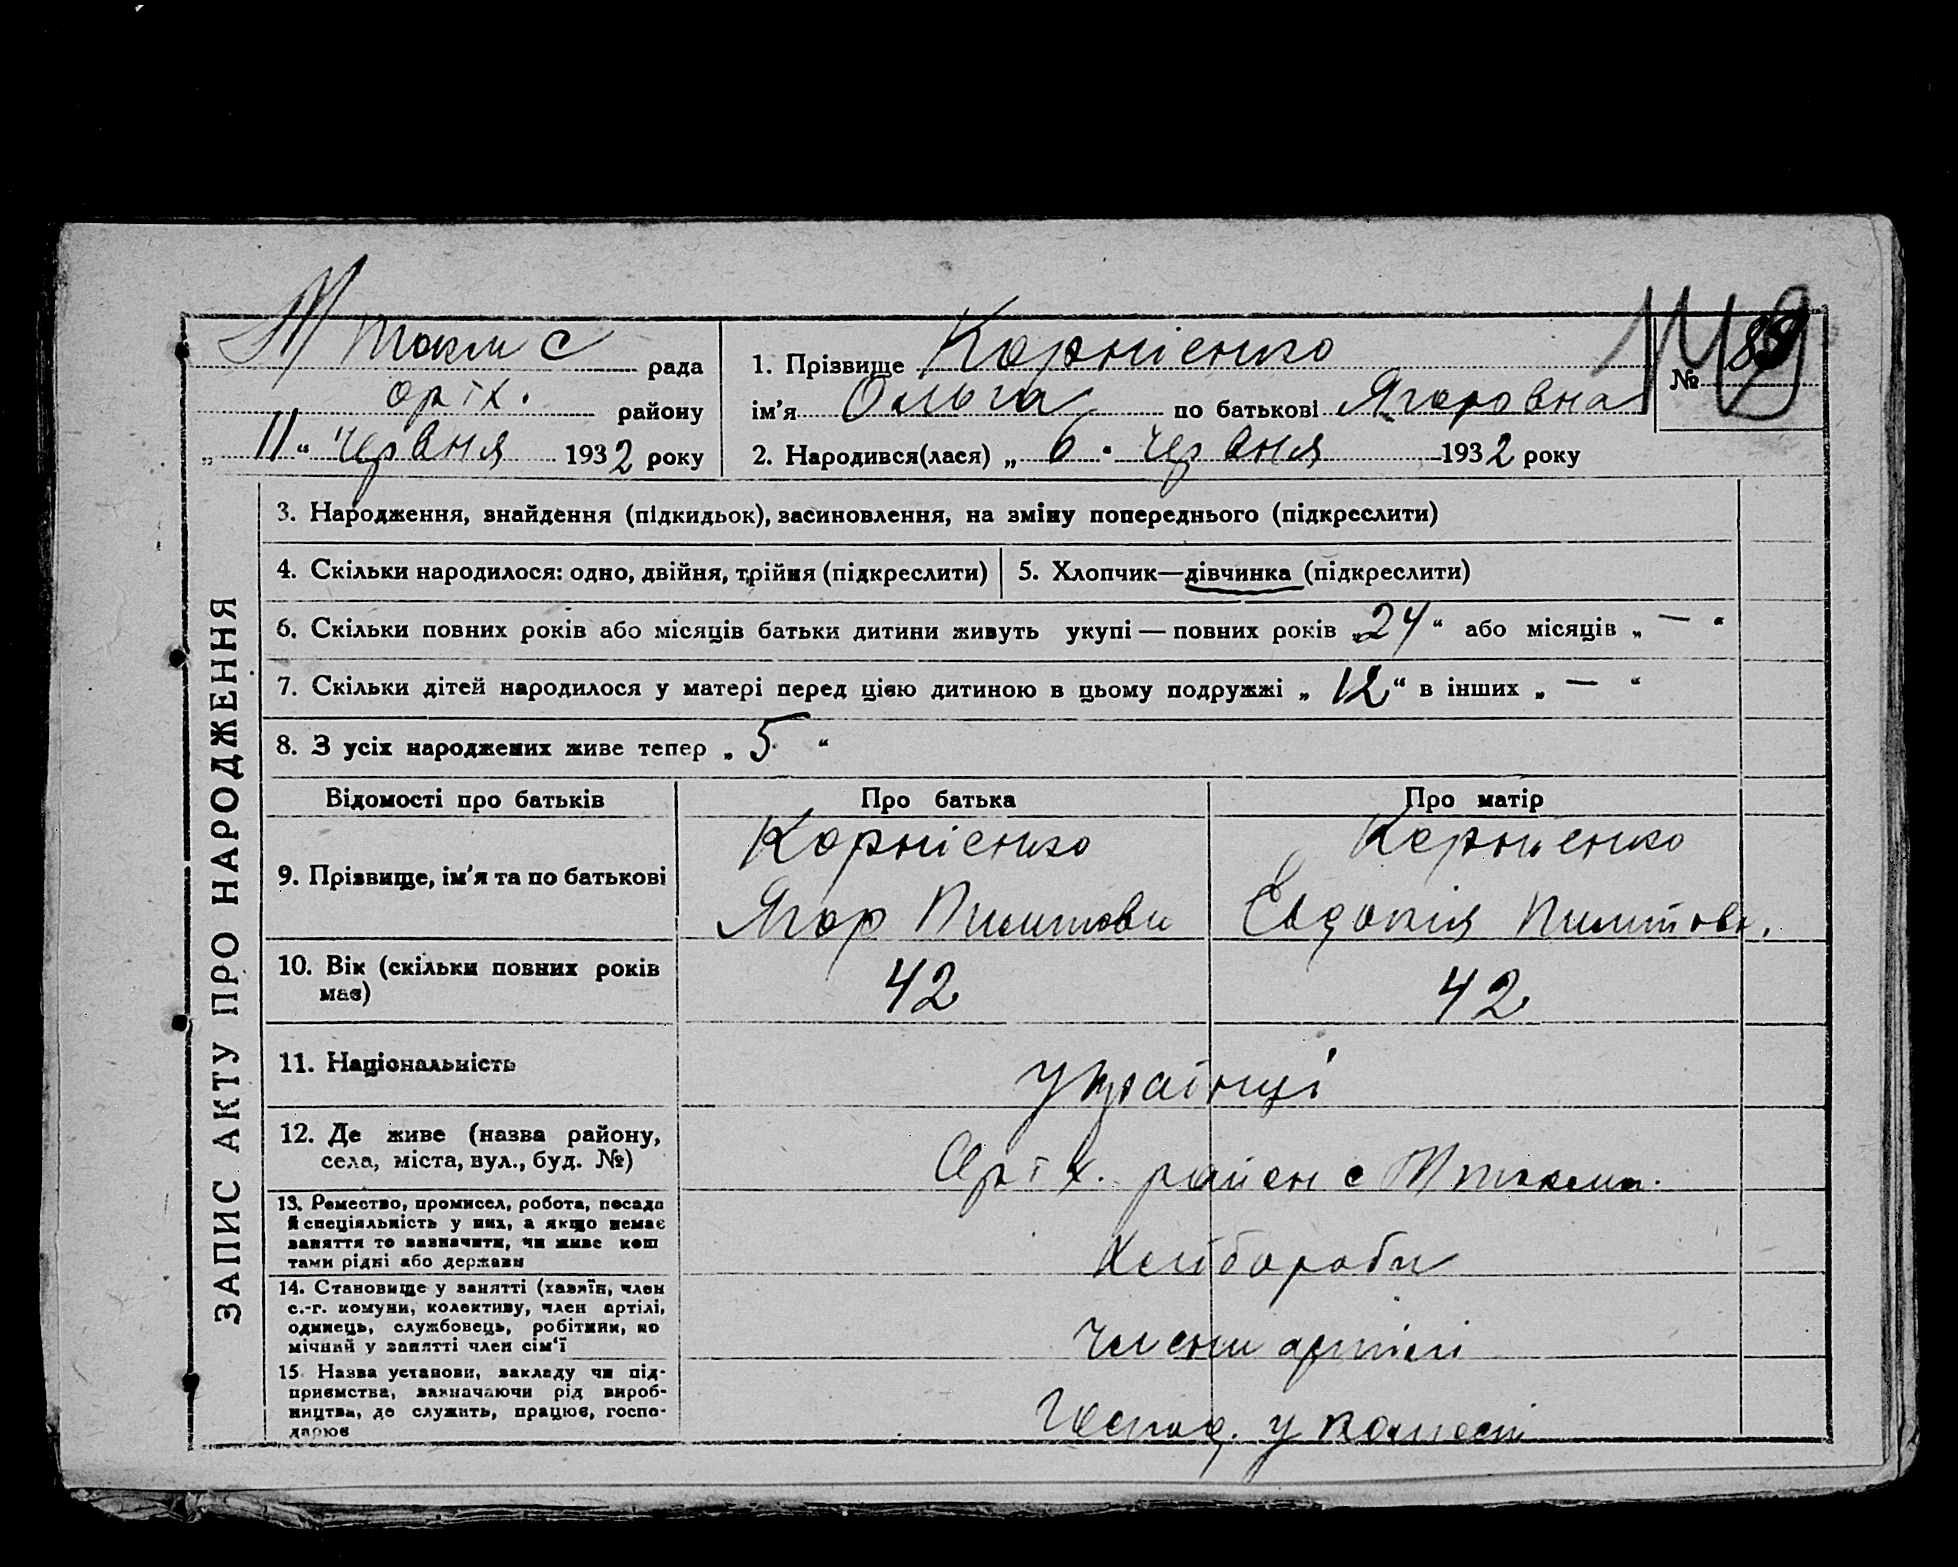 М Токм с рада
оріх. району
„ 11 “ червня 1932 року
1. Прізвище Корнієнко
ім'я Ольга по батькові Ягоровна
№
2. Народився(лася) „ 6 “ червня 1932 року
ЗАПИС АКТУ ПРО НАРОДЖЕННЯ
3. Народження, знайдення (підкидьок), засиновлення, на зміну попереднього (підкреслити)
4. Скільки народилося: одно, двійня, трійня (підкреслити)
5. Хлопчик—дівчинка (підкреслити)
6. Скільки повних років або місяців батьки дитини живуть укупі — повних років „24“ або місяців „ — “
7. Скільки дітей народилося у матері перед цією дитиною в цьому подружжі „ 12 “ в інших „ — “
8. З усіх народжених живе тепер „ 5 “
Відомості про батьків
Про батька
Про матір
9. Прізвище, ім'я та по батькові
Корнієнко
Ягор Пилипови
Корниенко
Евдокія
10. Вік (скільки повних років
має)
42
42
11. Національність
українці
12. Де живе (назва району,
села, міста, вул., буд. №)
Оріх. район с
13. Ремество, промисел, робота, посада
й спеціяльність у них, а якщо немає
заняття то зазначити, чи живе кош
тами рідні або держави
Хлібороби
14. Становище у занятті (хазяїн, член
с.-г. комуни, колективу, член артілі,
одинець, службовець, робітник, по
мічний у занятті член сім'ї
члени артілі
15. Назва установи, закладу чи під-
приємства, зазначаючи рід вироб-
ництва, де служить, працює, госпо-
дарює
Господ. у